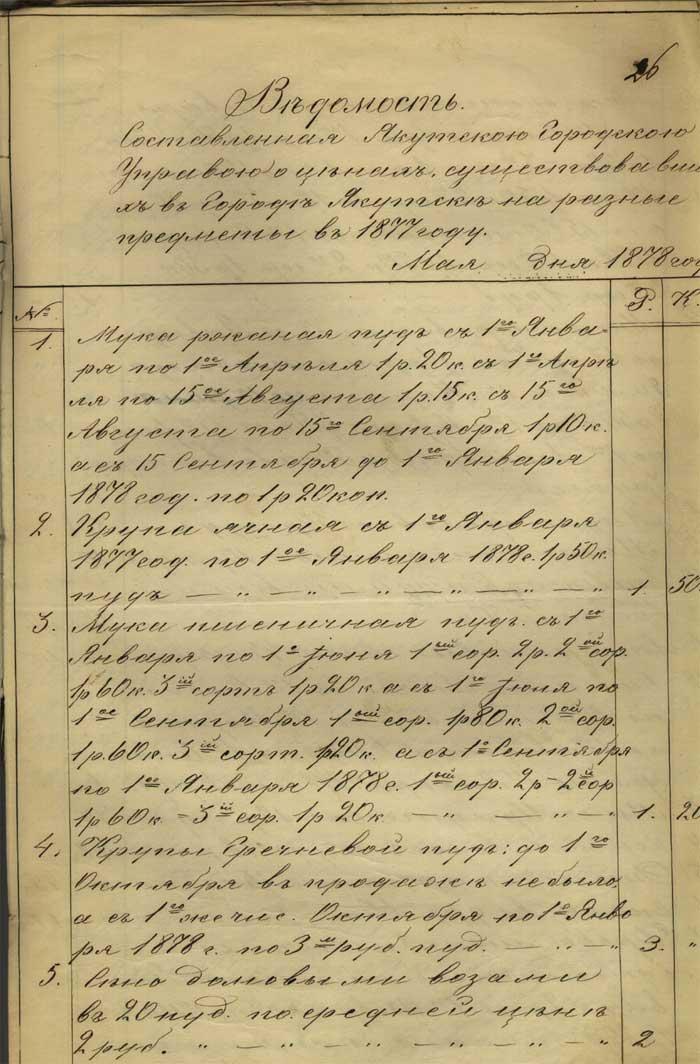 26
Вѣдомость.
Составленная Якутскою Городскою
Управою о цѣнахъ, существовавши
хъ въ Городѣ Якутскѣ на разные
предметы въ 1877 году.
Мая дня 1878 год
№ Р. К.
1. Мука ржаная пудъ съ 1го Янва-
ря по 1ое Апрѣля 1р. 20к. съ 1го Апрѣ
ля по 15ое Августа 1р. 15к. съ 15го
Августа по 15го Сентября 1р10к.
а съ 15 Сентября до 1го Января
1878 год. по 1р 20 коп.
2. Крупа ячная съ 1го Января
1877 год. по 1ое Января 1878 г. 1р50к.
пудъ — „ — „ — „ — „ — „ 1. 50.
3. Мука пшеничная пудъ. съ 1го
Января по 1е Іюня 1ый сор. 2р. 2ой сор.
1р 60к. 3ій сортъ 1р 20к. а съ 1го Іюня по
1ое Сентября 1ый сор. 1р80к. 2ой сор.
1р. 60к. 3ій сорт. 1р20к. а съ 1о Сентября
по 1ое Января 1878 г. 1ый сор. 2р - 2ой сор
1р 60к - 3ій сор. 1р 20к — „ — „ — „ 1. 20
4. Крупы Гречневой пудъ: до 1го
Октября въ продажѣ не было,
а съ 1го же чис. Октября по 1е Янва
ря 1878 г. по 3м руб. пуд. — „ — „ 3. „
5. Сѣно домовыми возами
въ 20 пуд. по средней цѣнѣ
2 руб. „ — „ — „ — „ — „ — „ 2